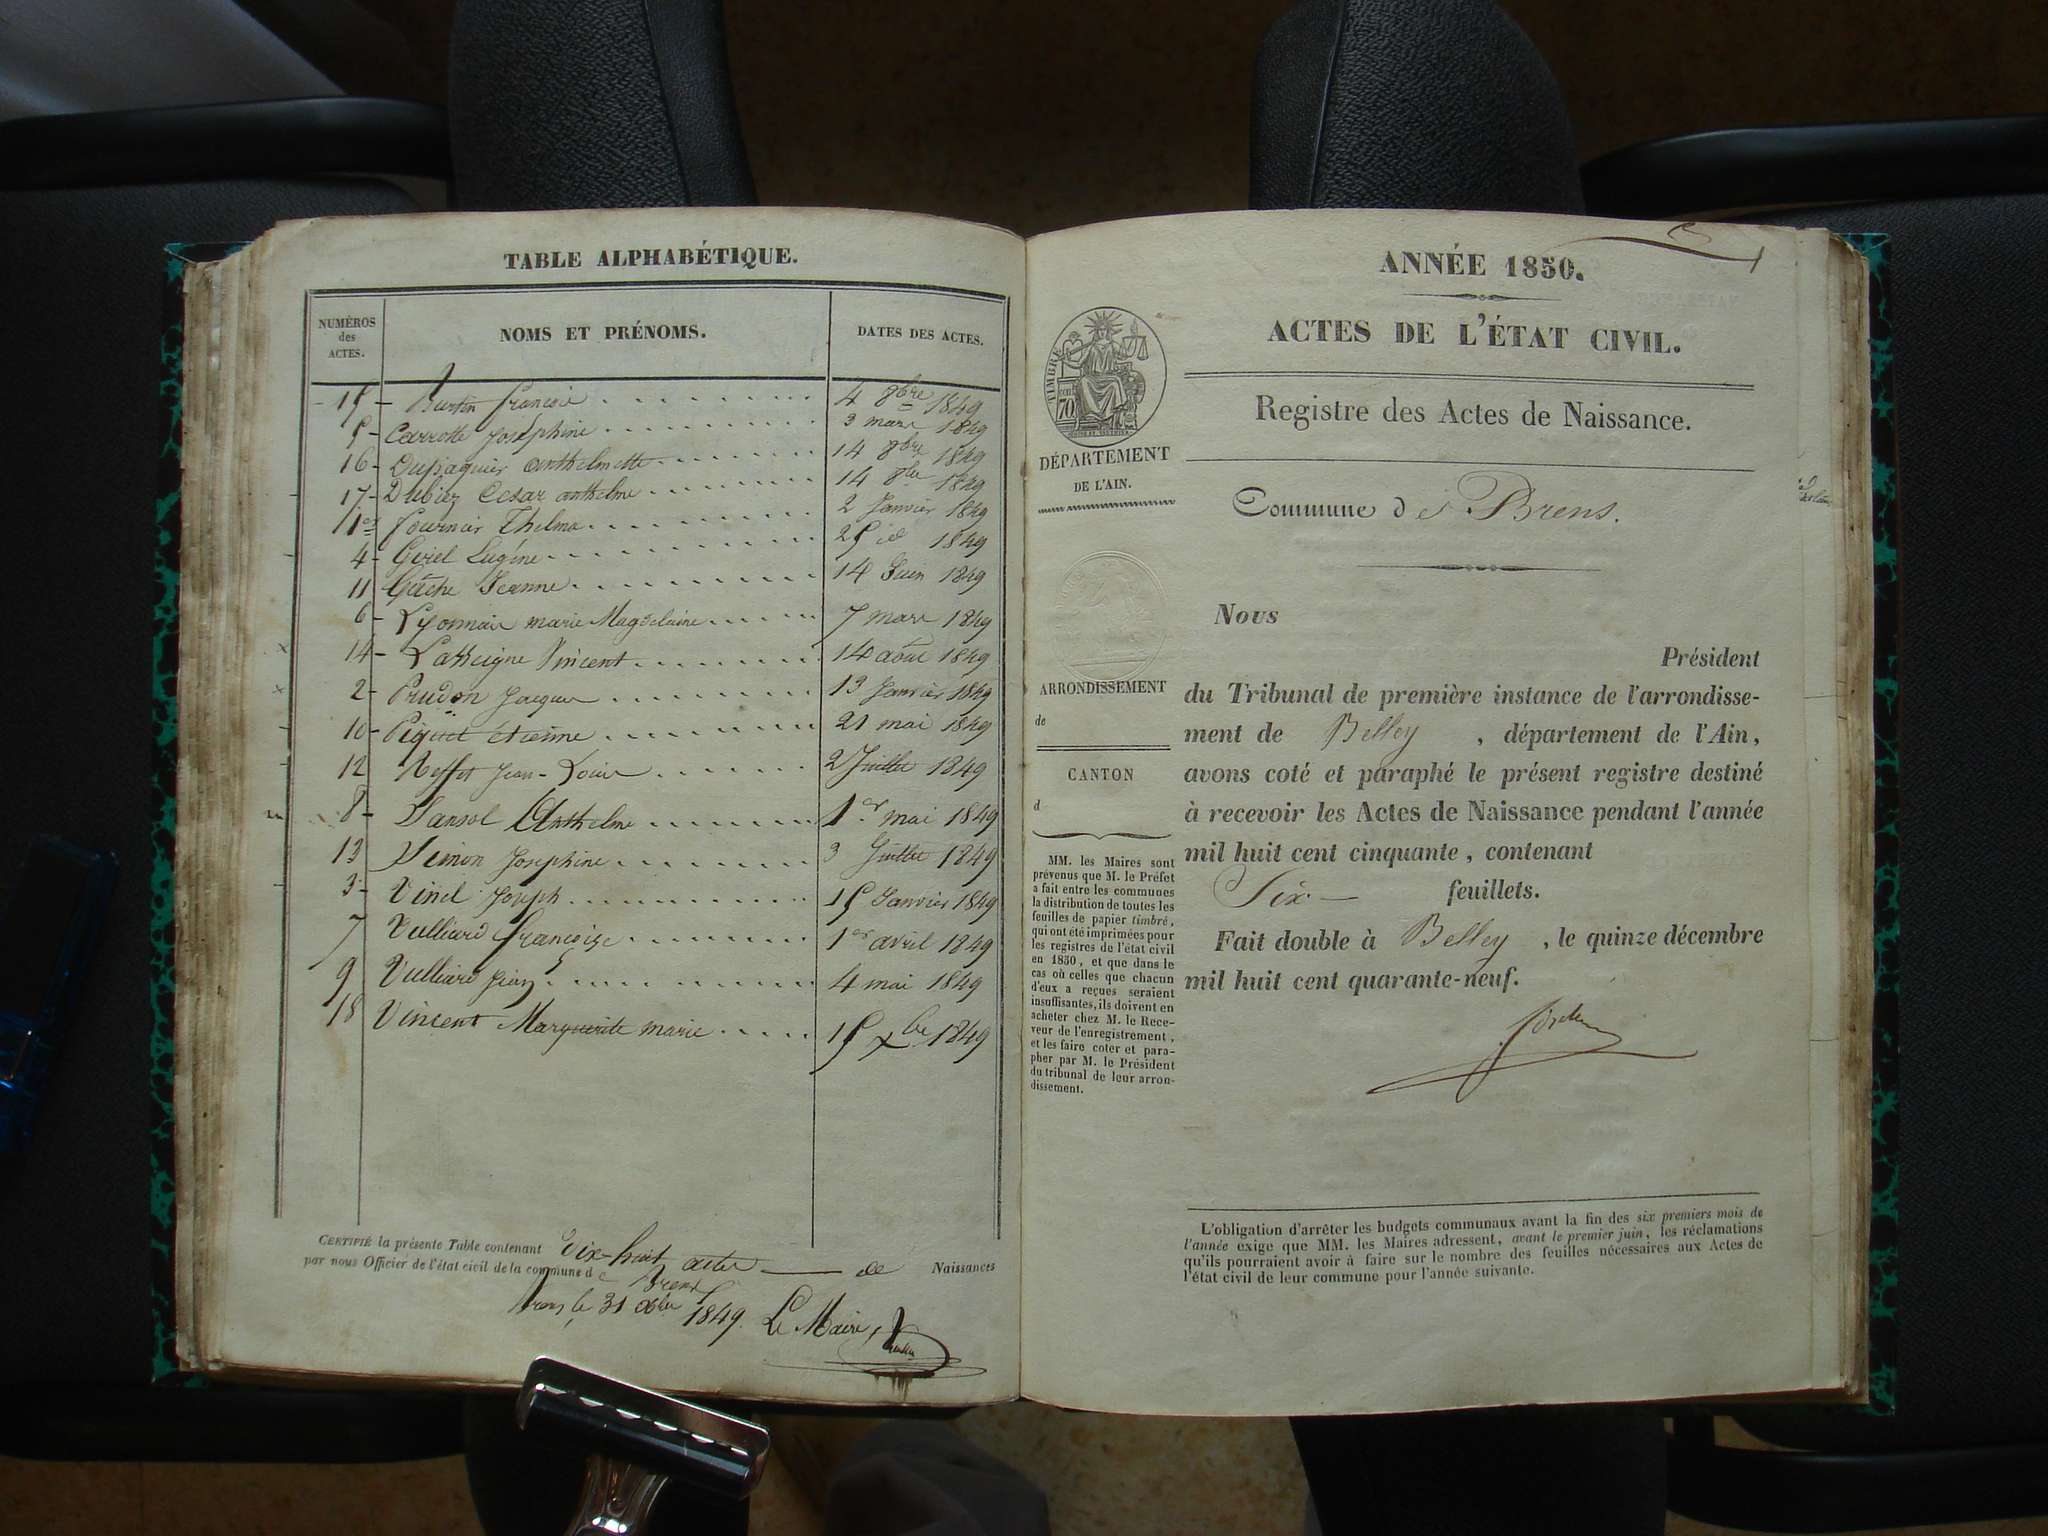 TABLE ALPHABÉTIQUE.
NUMÉROS des ACTES. NOMS ET PRÉNOMS. DATES DES ACTES.
15 - Burtin françois 4 8bre 1849
5 - Carrotte Joséphine 3 mars 1849
16 - Dupaquier anthelmette 14 8bre 1849
17 - Dubiez Cesar anthelme 14 8bre 1849
1er fournier Thelma 2 Janvier 1849
4 - Goriel Eugéne 25 id 1849
11 Gache Jeanne 14 Juin 1849
6 - Lyonnais marie Magdelaine 7 mars 1849
14 - Vincent 14 août 1849
2 - Prudon Jacques 13 Janvier 1849
10 - Piquet étienne 21 mai 1849
12 Jean-Louis 2 Juillet 1849
8 - Sansol Anthelme 1er mai 1849
13 Simon Josephine 3 Juillet 1849
3 - Vinel Joseph 15 Janvier 1849
7 Vulliard françoise 1er avril 1849
9 Vulliard Jean 4 mai 1849
18 Vincent Marguerite marie 15 xbre 1849
CERTIFIÉ la présente Table contenant Dix-huit actes de Naissances
par nous Officier de l'état civil de la commune de Brens
Brens le 31 xbre 1849. Le Maire,
ANNÉE 1850.
ACTES DE L'ÉTAT CIVIL.
Registre des Actes de Naissance.
TIMBRE
70
DÉPARTEMENT
DE L'AIN.
Commune de Brens.
ARRONDISSEMENT
de
CANTON
d
MM. les Maires sont
prévenus que M. le Préfet
a fait entre les communes
la distribution de toutes les
feuilles de papier timbré,
qui ont été imprimées pour
les registres de l'état civil
en 1850, et que dans le
cas où celles que chacun
d'eux a reçues seraient
insuffisantes, ils doivent en
acheter chez M. le Rece-
veur de l'enregistrement,
et les faire coter et para-
pher par M. le Président
du tribunal de leur arron-
dissement.
Nous
Président
du Tribunal de première instance de l'arrondisse-
ment de Belley, département de l'Ain,
avons coté et paraphé le présent registre destiné
à recevoir les Actes de Naissance pendant l'année
mil huit cent cinquante, contenant
Six feuillets.
Fait double à Belley, le quinze décembre
mil huit cent quarante-neuf.
L'obligation d'arrêter les budgets communaux avant la fin des six premiers mois de
l'année exige que MM. les Maires adressent, avant le premier juin, les réclamations
qu'ils pourraient avoir à faire sur le nombre des feuilles nécessaires aux Actes de
l'état civil de leur commune pour l'année suivante.